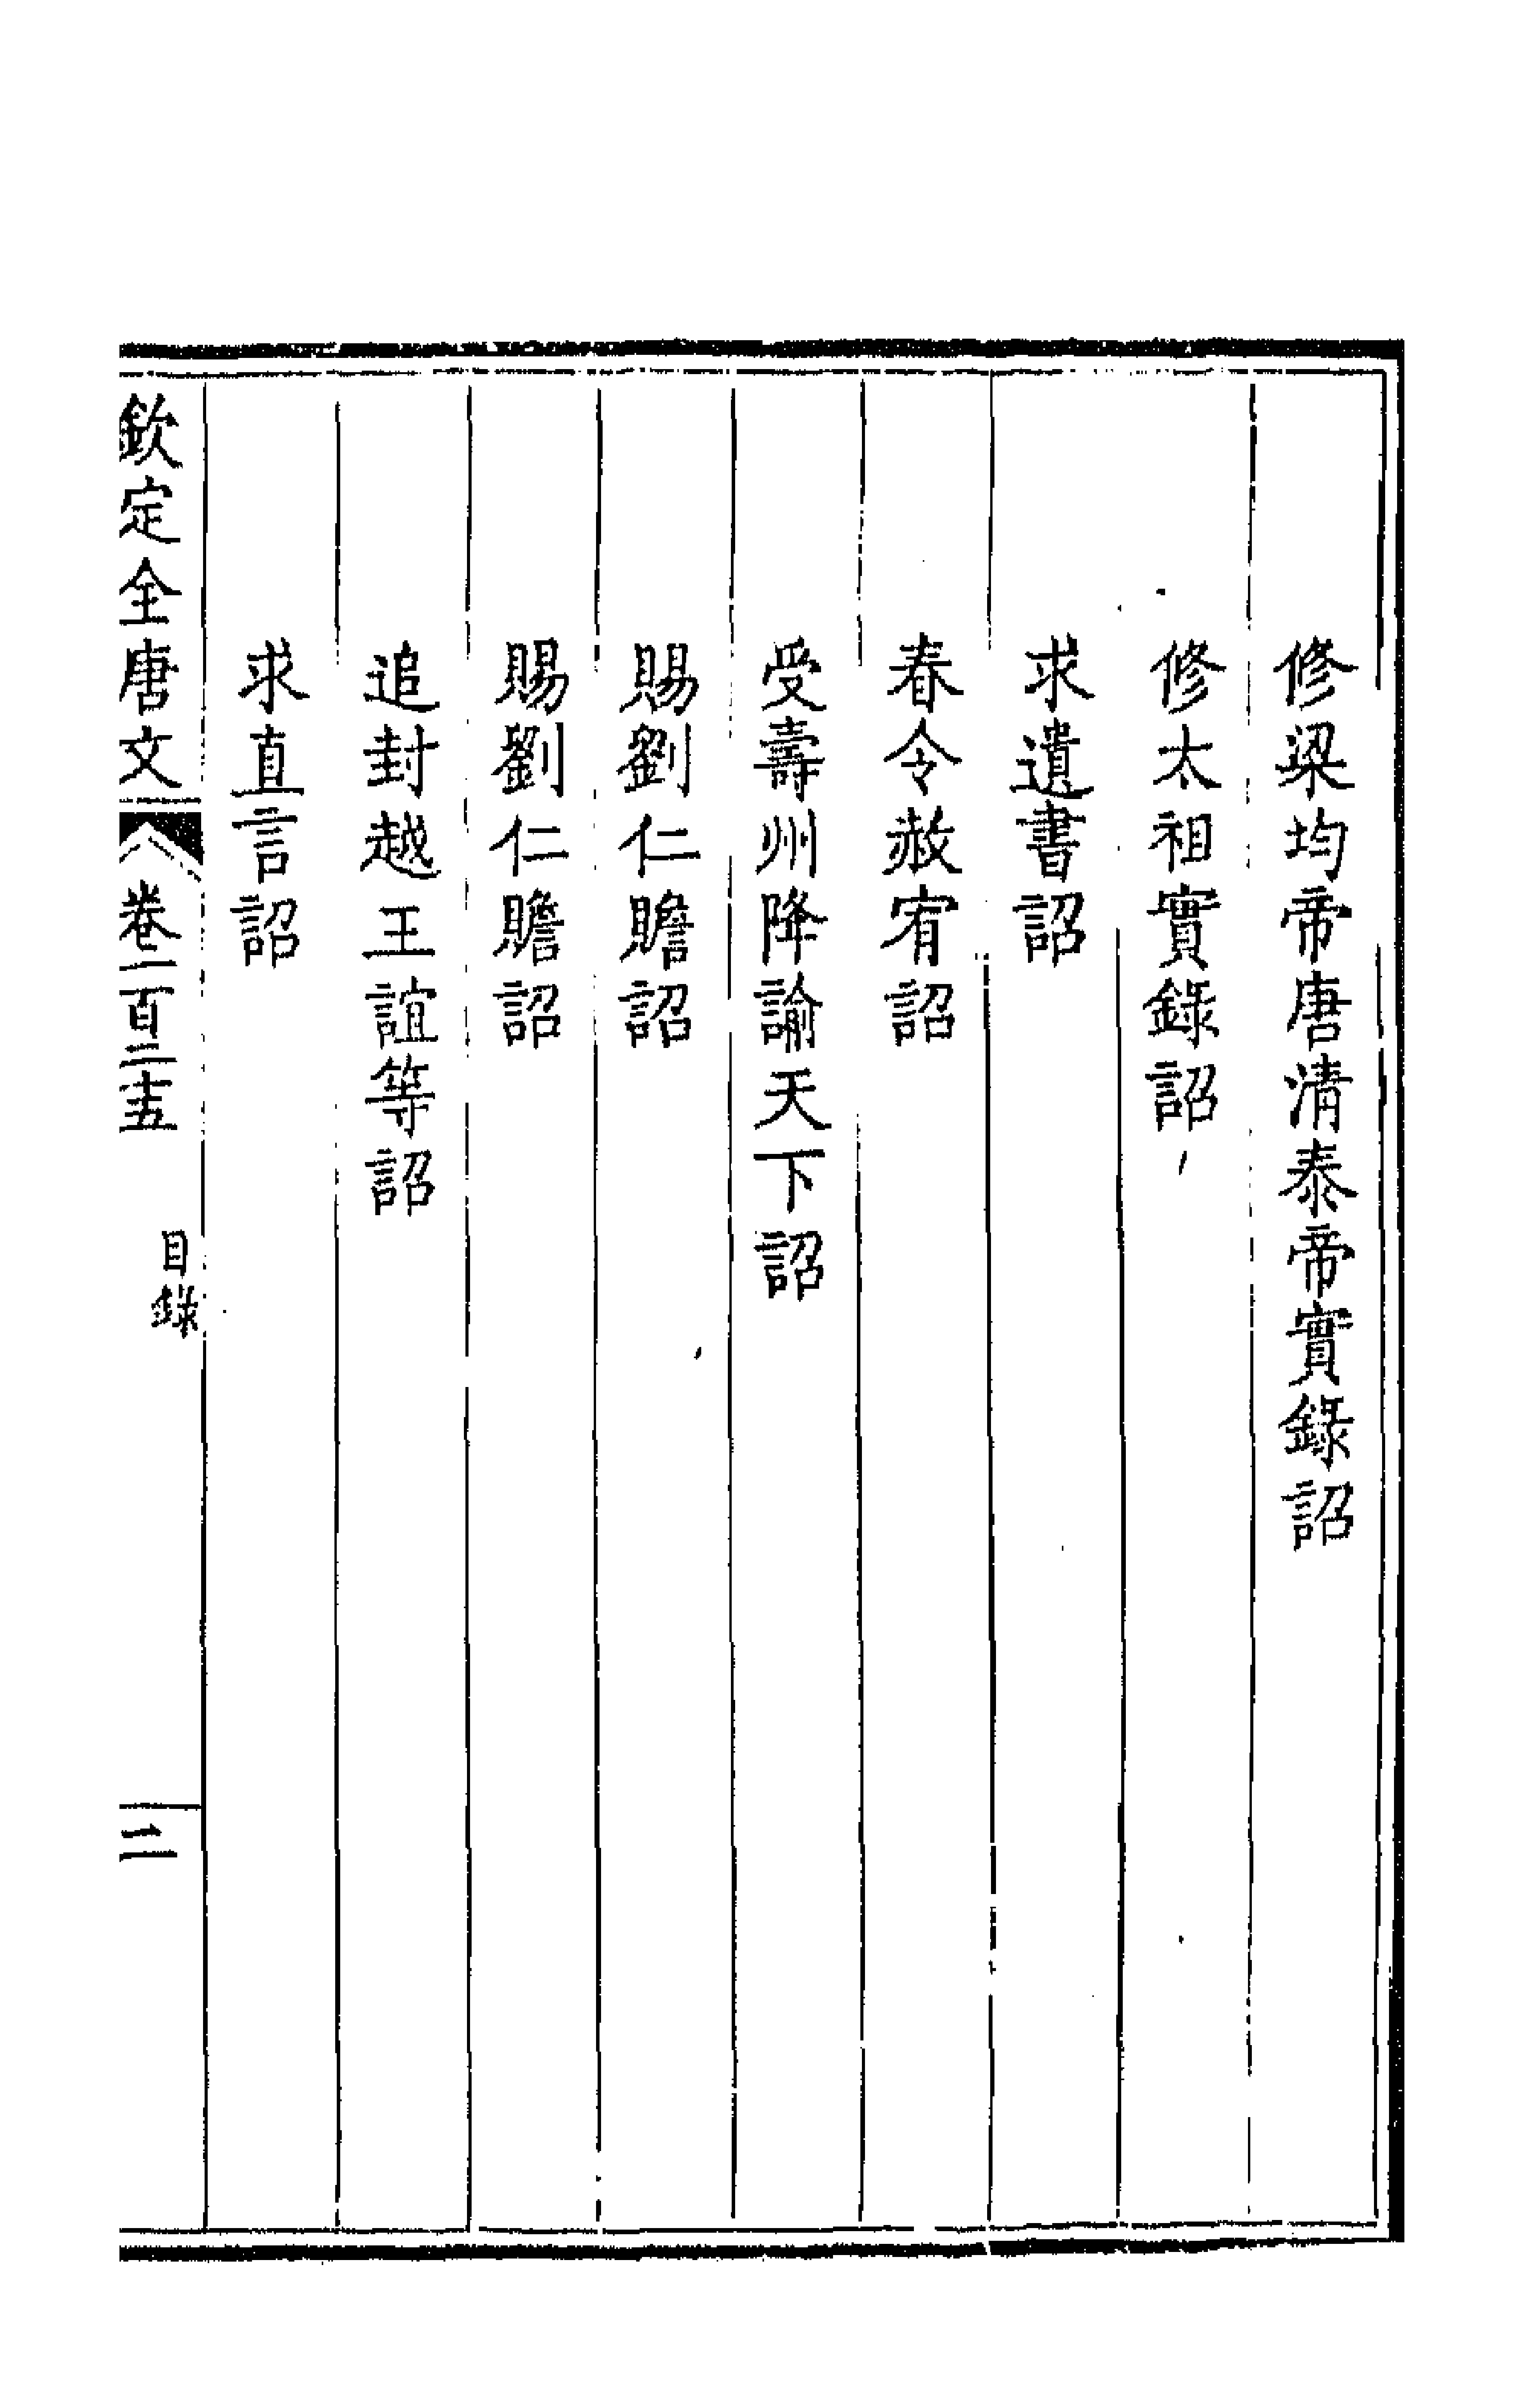 修梁均帝唐清泰帝實錄詔
修太祖實錄詔
求遺書詔
春令赦宥詔
受壽州降諭天下詔
賜劉仁贍詔
賜劉仁贍詔
追封越王誼等詔
求直言詔
欽定全唐文 卷一百二十五 目錄 二